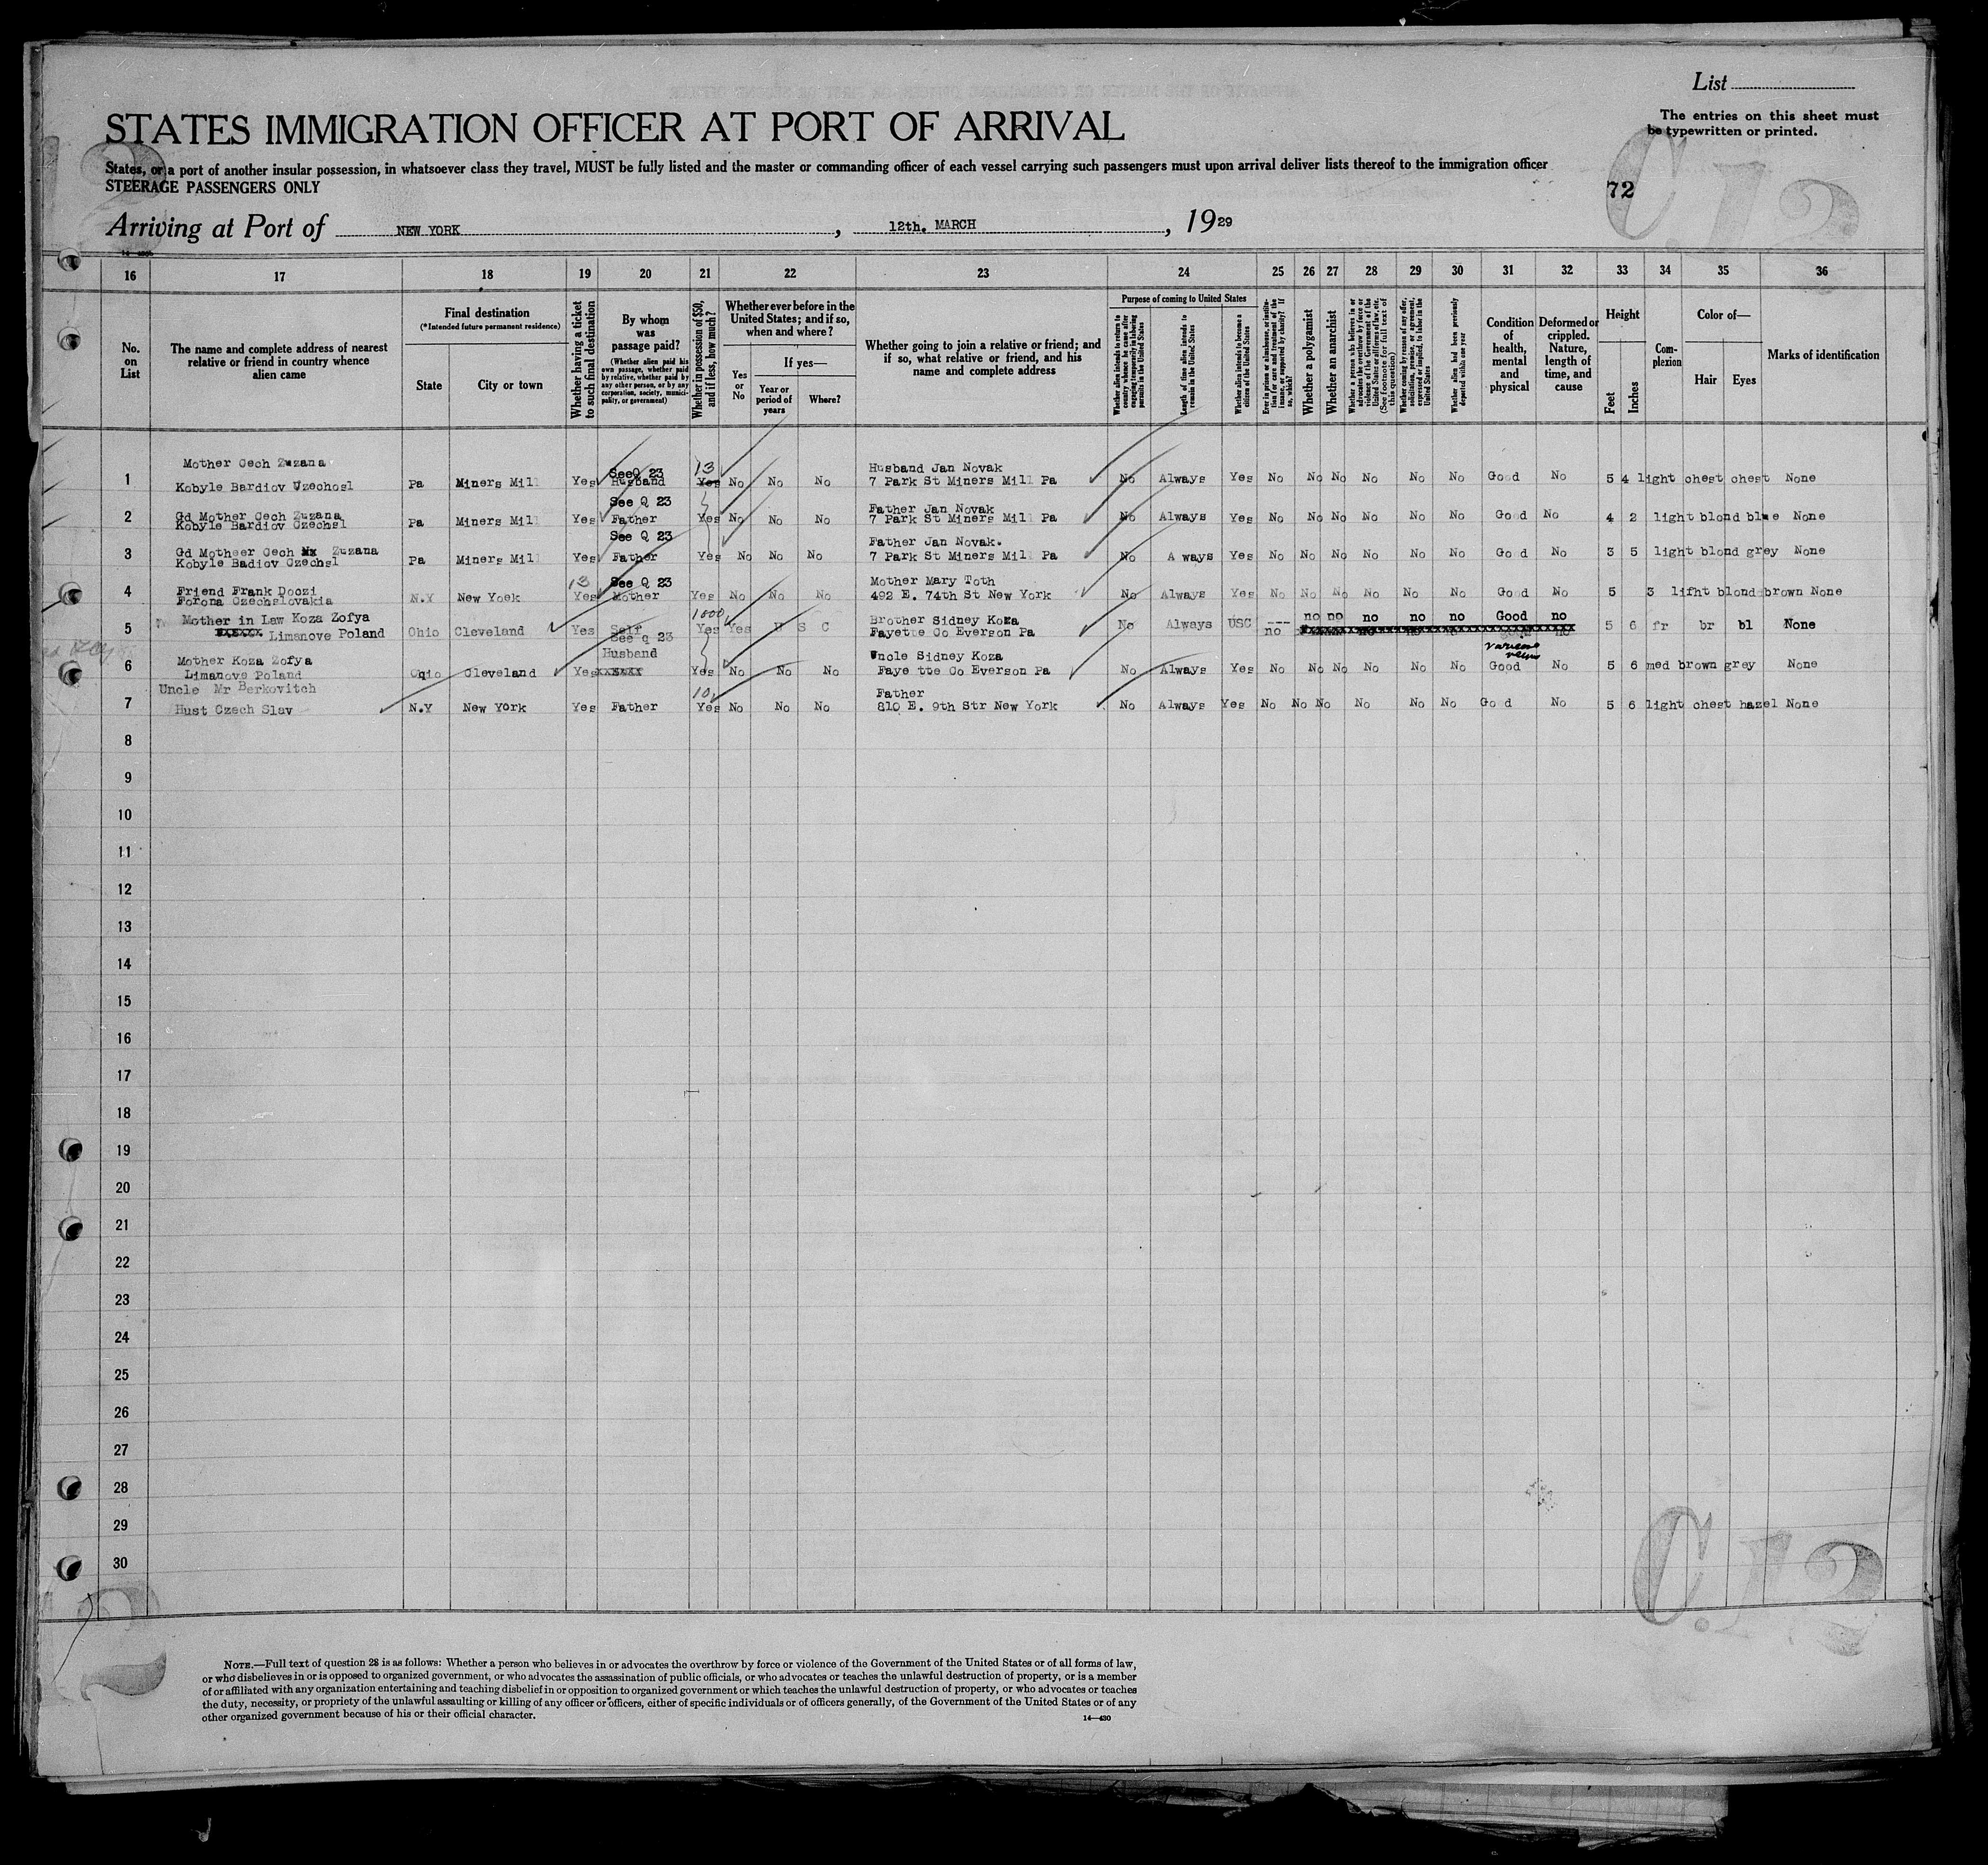 List
The entries on this sheet must
be typewritten or printed.
STATES IMMIGRATION OFFICER AT PORT OF ARRIVAL
States, or a port of another insular possession, in whatsoever class they travel, MUST be fully listed and the master or commanding officer of each vessel carrying such passengers must upon arrival deliver lists thereof to the immigration officer
STEERAGE PASSENGERS ONLY
72
C 12
Arriving at Port of NEW YORK, 12th. MARCH, 1929
16 17 18 19 20 21 22 23 24 25 26 27 28 29 30 31 32 33 34 35 36
No. on List
The name and complete address of nearest relative or friend in country whence alien came
Final destination
(*Intended future permanent residence)
State
City or town
Whether having a ticket to such final destination
By whom was passage paid?
(Whether alien paid his own passage, whether paid by relative, whether paid by any other person, or by any corporation, society, municipality, or government)
Whether in possession of $50, and if less, how much?
Whether ever before in the United States; and if so, when and where?
Yes or No
If yes—
Year or period of years
Where?
Whether going to join a relative or friend; and if so, what relative or friend, and his name and complete address
Purpose of coming to United States
Whether alien intends to return to country whence he came after engaging temporarily in laboring pursuits in the United States
Length of time alien intends to remain in the United States
Whether alien intends to become a citizen of the United States
Ever in prison or almshouse, or institution for care and treatment of the insane, or supported by charity? If so, which?
Whether a polygamist
Whether an anarchist
Whether a person who believes in or advocates the overthrow by force or violence of the Government of the United States or all forms of law, etc. (See footnote for full text of this question)
Whether coming by reason of any offer, solicitation, promise, or agreement, expressed or implied, to labor in the United States
Whether alien had been previously deported within one year
Condition of health, mental and physical
Deformed or crippled. Nature, length of time, and cause
Height
Feet
Inches
Complexion
Color of—
Hair
Eyes
Marks of identification
Mother Cech Zuzana See Q 23 13 Husband Jan Novak
1 Kobyle Bardiov Czechosl Pa Miners Mill Yes Husband Yes No No No 7 Park St Miners Mill Pa No Always Yes No No No No No No Good No 5 4 light chest chest None
Gd Mother Cech Zuzana See Q 23 Father Jan Novak
2 Kobyle Bardiov Czechsl Pa Miners Mill Yes Father Yes No No No 7 Park St Miners Mill Pa No Always Yes No No No No No No Good No 4 2 light blond blue None
Gd Motheer Cech Nx Zuzana See Q 23 Father Jan Novak.
3 Kobyle Badiov Czechsl Pa Miners Mill Yes Father Yes No No No 7 Park St Miners Mill Pa No A ways Yes No No No No No No Good No 3 5 light blond grey None
Friend Frank Doczi 13 See Q 23 Mother Mary Toth
4 Forona Czechslovakia N.Y New Yoek Yes Mother Yes No No No 492 E. 74th St New York No Always Yes No No No No No No Good No 5 3 lifht blond brown None
Mother in Law Koza Zofya 1800 Brother Sidney Koza --- no no no no no Good no
5 Limanove Poland Ohio Cleveland Yes Self Yes Yes U S C Fayette Co Everson Pa No Always USC no 5 6 fr br bl None
See q 23
Mother Koza Zofya Husband Uncle Sidney Koza varicose veins
6 Limanove Poland Ohio Cleveland Yes Yes No No No Faye tte Co Everson Pa No Always Yes No No No No No No Good No 5 6 med brown grey None
Uncle Mr Berkovitch 10 Father
7 Hust Czech Slav N.Y New York Yes Father Yes No No No 810 E. 9th Str New York No Always Yes No No No No No No Good No 5 6 light chest hazel None
8
9
10
11
12
13
14
15
16
17
18
19
20
21
22
23
24
25
26
27
28
29
30
C.12
NOTE.—Full text of question 28 is as follows: Whether a person who believes in or advocates the overthrow by force or violence of the Government of the United States or of all forms of law,
or who disbelieves in or is opposed to organized government, or who advocates the assassination of public officials, or who advocates or teaches the unlawful destruction of property, or is a member
of or affiliated with any organization entertaining and teaching disbelief in or opposition to organized government or which teaches the unlawful destruction of property, or who advocates or teaches
the duty, necessity, or propriety of the unlawful assaulting or killing of any officer or officers, either of specific individuals or of officers generally, of the Government of the United States or of any
other organized government because of his or their official character.
14—430